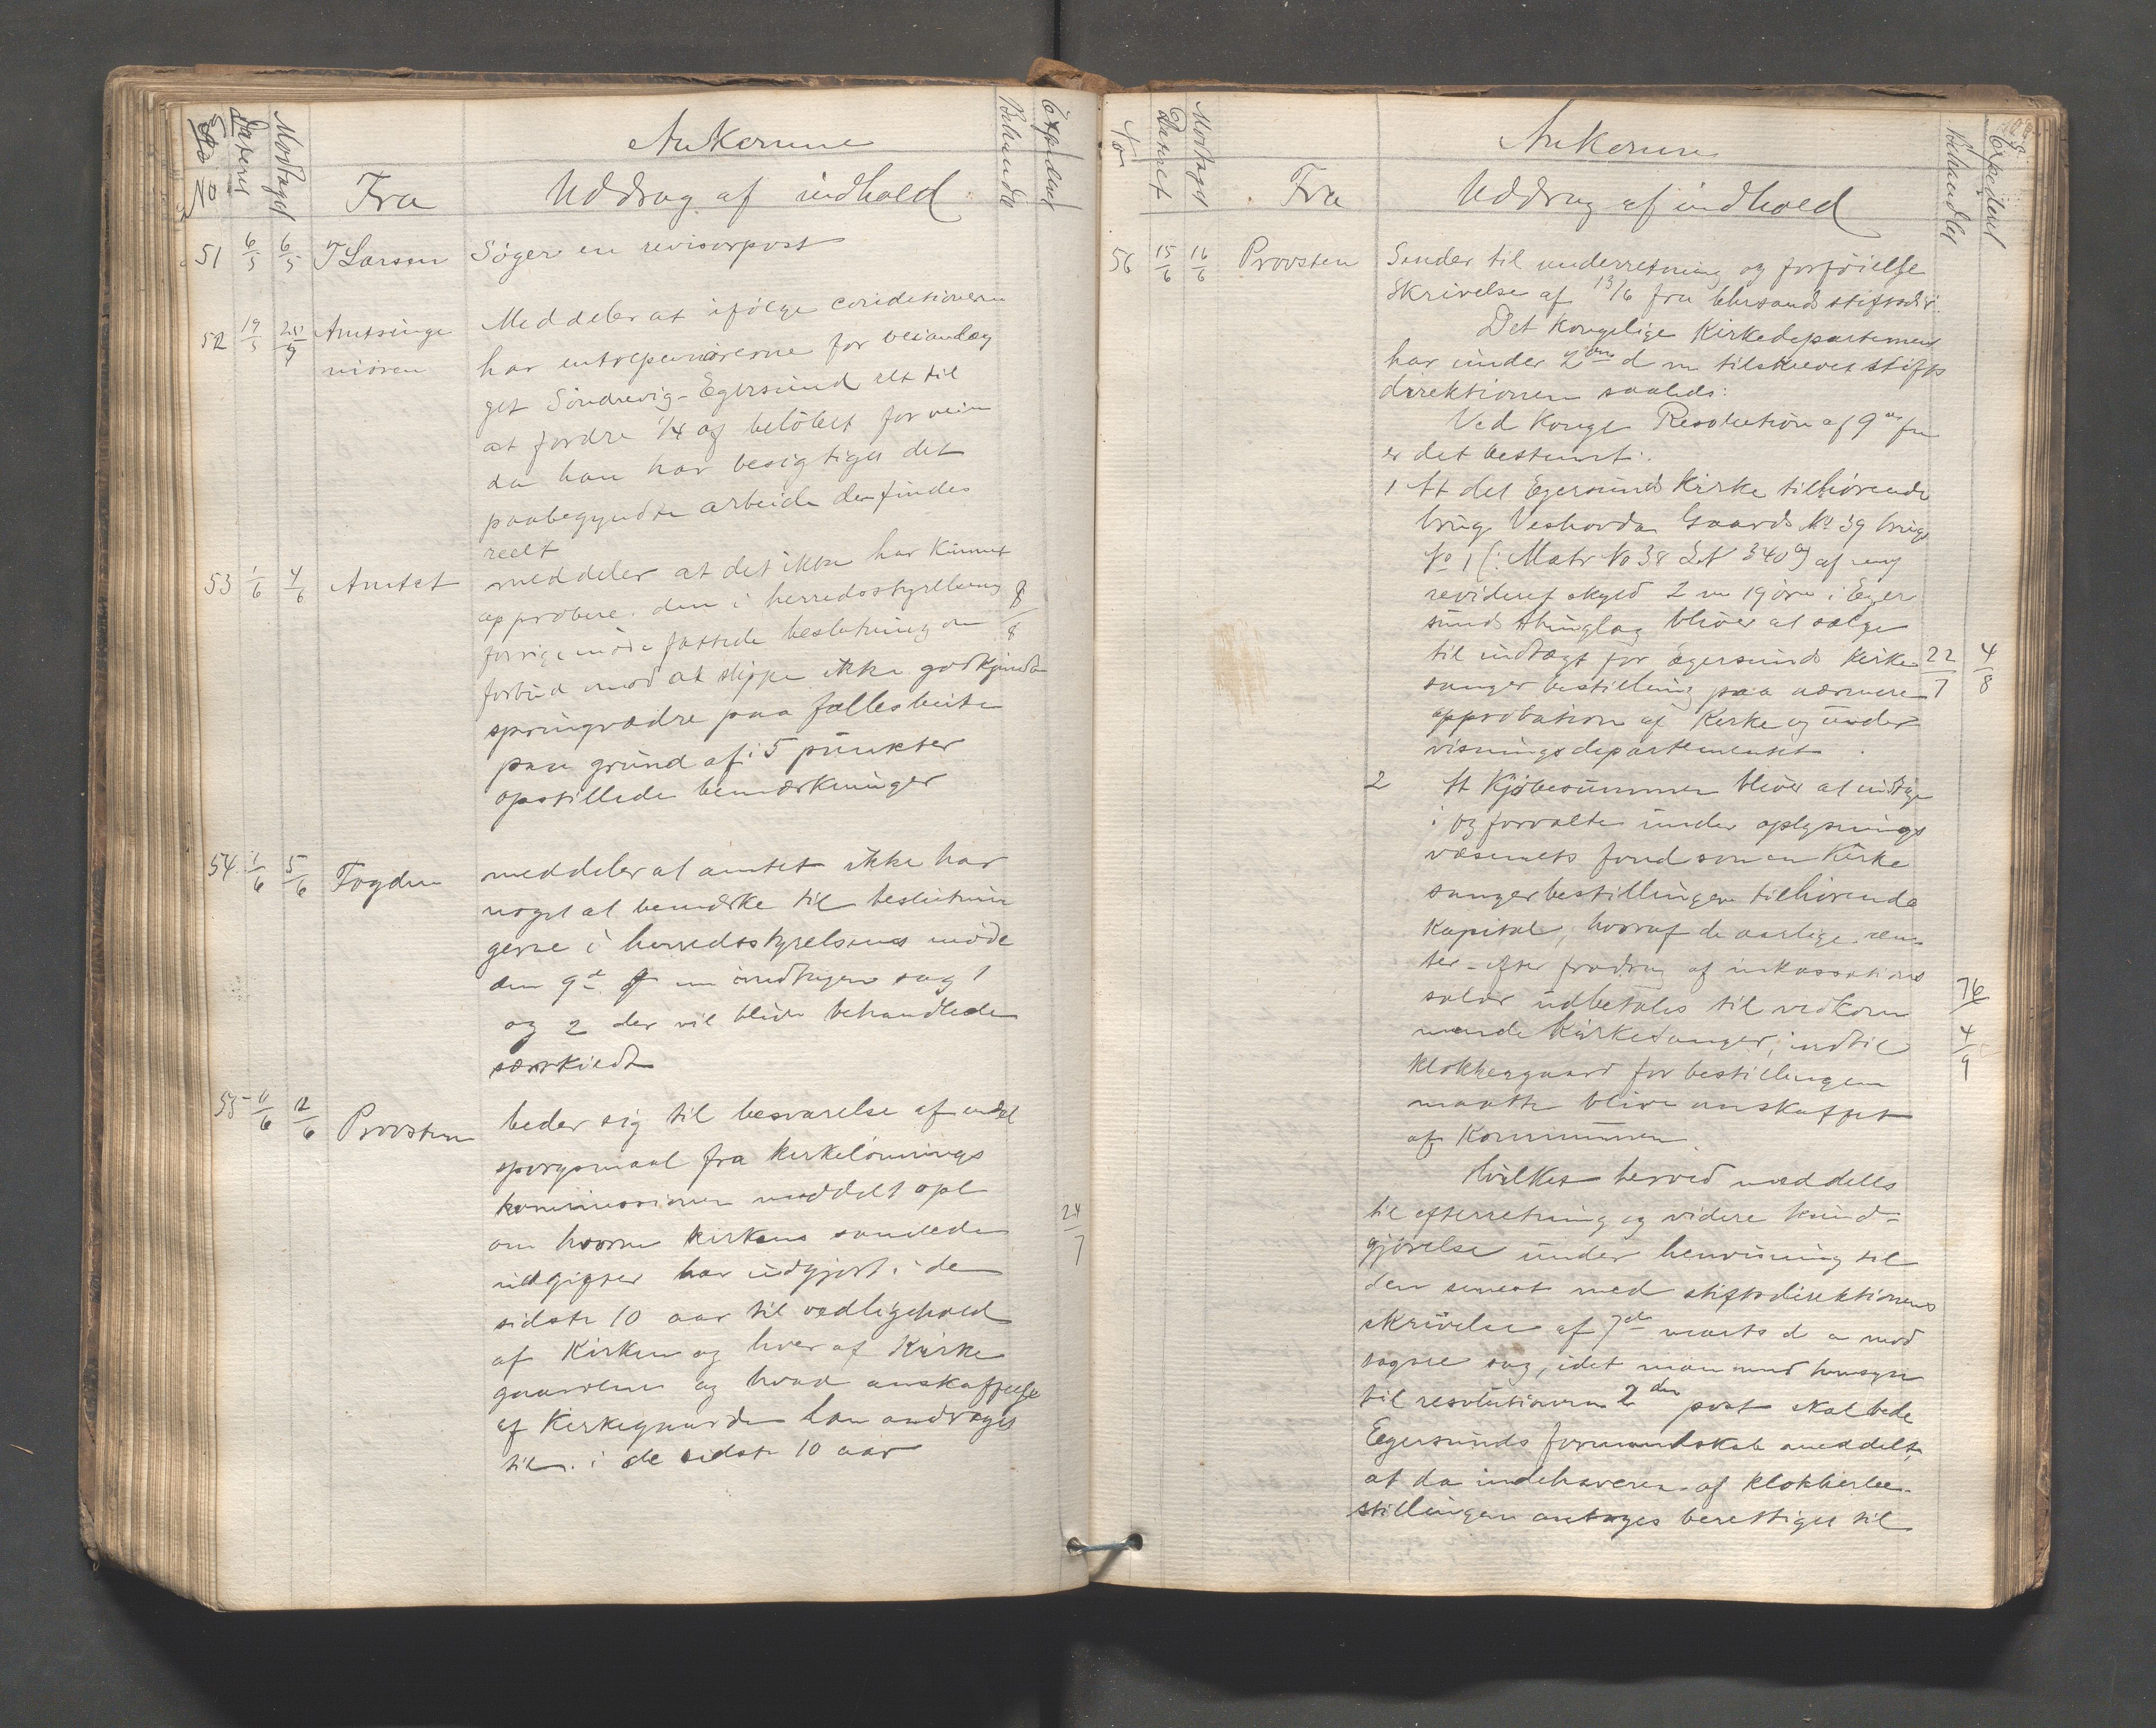 Ankomne
No
Dateret
Modtaget
Fra
Uddrag af indhold
Behandlet
Expederet
51 6/5 6/5 T Larsen Søger en revisorpost
52 19/5 Amtsinge
niøren
Meddeler at ifølge conditionerne
har entreprenørerne for veianlæg
get Søndrevig-Egersund ret til
at fordre 1/4 af beløbet for veien
da han har besigtiget det
paabegyndte arbeide der findes
reelt
53 1/6 4/6 Amtet meddeler at det ikke har kunnet
approbere den i herredsstyrelsens
forrige møde fattede beslutning om
forbud mod at slippe ikke godkjendte
springvædre paa fællesbeite
paa grund af i 5 punkter
opstillede bemærkninger
8/8
54 1/6 5/6 Fogden meddeler at amtet ikke har
noget at bemærke til beslutnin
gerne i herredsstyrelsens møde
den 9de undtagen sag 1
og 2 der vil blive behandlede
særskiedt
55 11/6 12/6 Provsten beder sig til besvarelse af endel
spørgsmaal fra kirkelønnings
kommissionen meddelt opl
om hvorme kirkens samlede
udgifter har udgjort i de
sidste 10 aar til vedligehold
af Kirken og hver af Kirke
gaardene og hvad anskaffelse
af Kirkegaarde har andraget
til i de sidste 10 aar
24/7
Ankomne
No
Dateret
Modtaget
Fra
Uddrag af indhold
Behandlet
Expederet
56 15/6 16/6 Provsten Sender til underretning og forføielse
skrivelse af 13/6 fra Chrsands stiftsdir.
Det kongelige Kirkedepartement
har under 2den d m tilskrevet stifts
direktionen saaleds:
Ved kongl Resolution af 9de
er det bestemt:
1 At det Egersunds Kirke tilhørende
brug Veshovda Gaards No 39 brugs
No 1 (: Matr No 38 LN 340a) af ny
revideret skyld 2 m 19 øre i Eger
sunds thinglag bliver at sælge
til indtægt for Egersunds Kirke
sanger bestilling paa nærmere
approbation af Kirke og under
visningsdepartementet.
22/7 4/8
2 At Kjøbesummen bliver at indtage
i og forvalte under oplysnings
væsenets fond som en Kirke
sangerbestillingen tilhørende
Kapital, hvoraf de aarlige ren
ter - efter fradrag af inkassations
salær udbetales til vedkom
mende Kirkesanger, indtil
klokkergaard for bestillingen
maatte blive anskaffet
af Kommunen.
76
4/9
Hvilket herved meddeles
til efterretning og videre kund-
gjørelse under henvisning til
den senest med stiftsdirektionens
skrivelse af 7de marts d a mod
tagne sag, idet man med hensyn
til resolutionens 2den post skal bede
Egersunds formandskab meddelt,
at da indehaveren af klokkerbe-
stillingen antages berettiget til